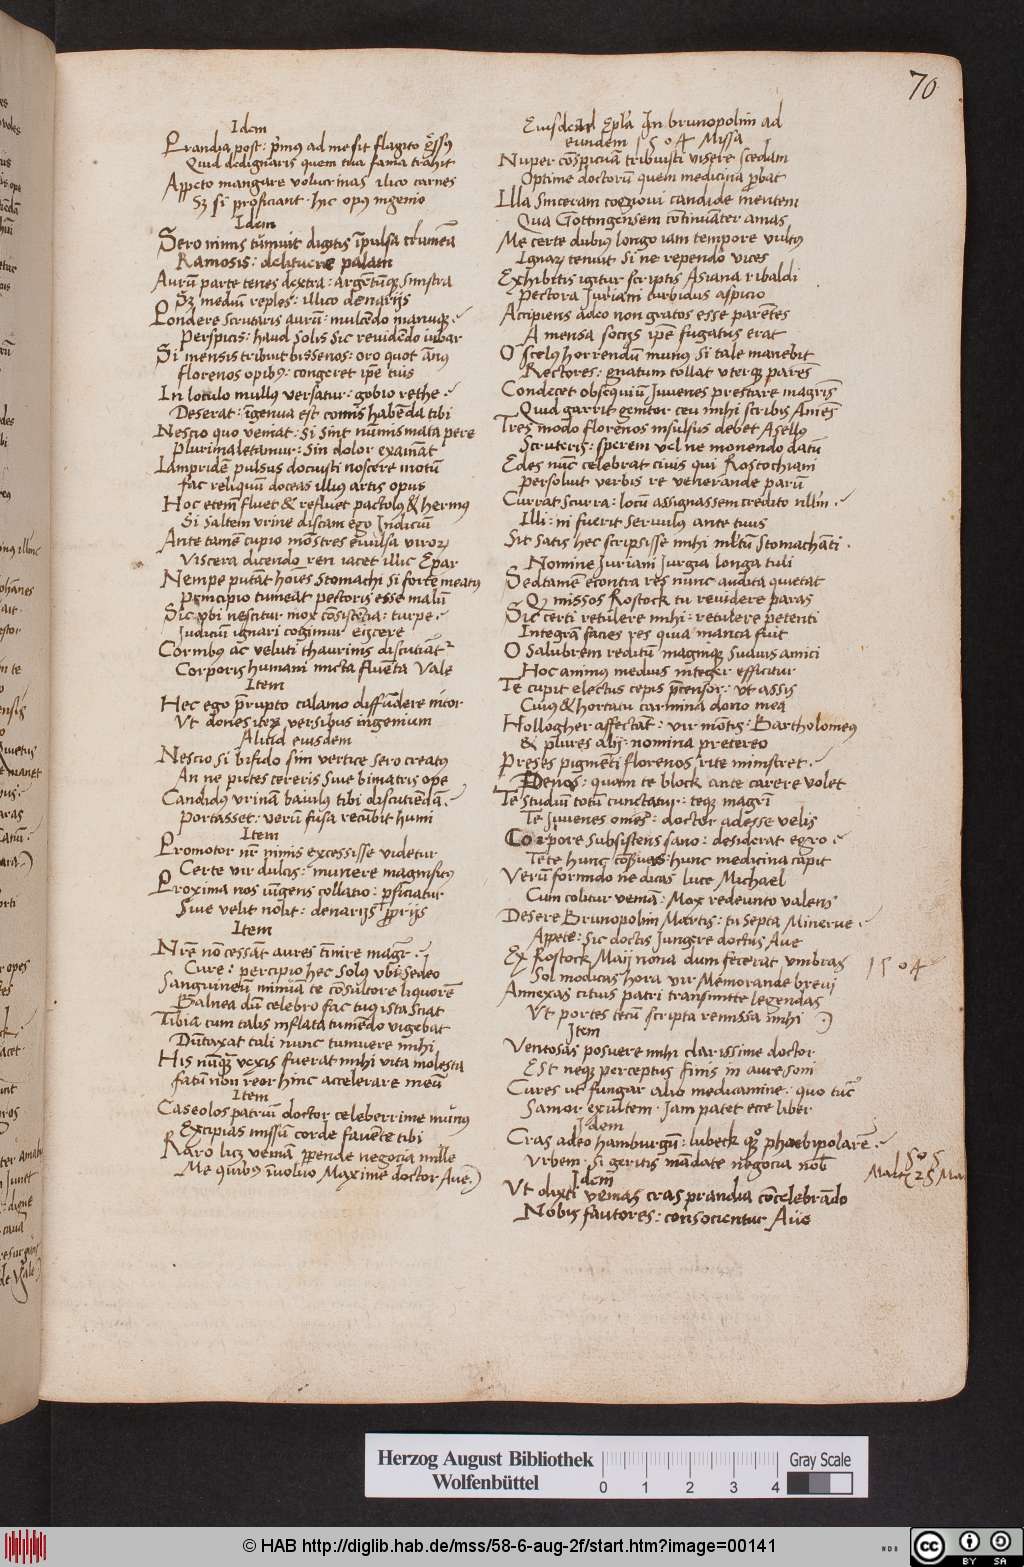 70
Idem
Prandia post: pͥmus ad me sit flagito gressus
Quid dedignaris quem tua fama trahit
Appeto mangare volucrinas ilico carnes
Sꝫ si proficiant hic opus ingenio
Idem
Sero nimis tumuit digitis īpulsa crumena
Ramosis: delituere palam
Aurū parte tenes dextra: argētūqꝫ sinistra
Sꝫ mediū reples: illico denarijs
Pondere scrutaris aurū: mulcēdo manuqꝫ
Perspicis: haud solis sic reuidēdo iubar
Si mensis tribuit bissenos: oro quot ānus
florenos opibus: congeret ip̄e tuis
In loculo mullus versatur: gobio rethe
Deserat: īgenua est comis habēda tibi
Nescio quo veniat: si sint nūmismata pere
Plurima letamur: sin dolor exanīat
Iampridē pulsus docuisti noscere motū
fac reliquū doceas illius artis opus
Hoc etem̄ fluet & refluet pactolus & hermus
Si saltem vrine discam ego Indiciū
Ante tamē cupio mōstres euulsa viroꝝ
Viscera dicendo ren iacet illic Epar
Nempe putāt hoīes stomachi si forte meatus
Principio tumeat pectoris esse malū
Sic vbi nescitur mox cōsistētia: turpe
Iudiciū ignari cogimur eijcere
Cornibus ac veluti thaurinis discutiāt
Corporis humani micta fluēta Vale
Item
Hec ego p̄rupto calamo diffūdere nitor
Vt dones iteꝝ versibus ingenium
Aliud eiusdem
Nescio si bifido sim vertice sero creatus
An ne putes cereris siue bimatris ope
Candidus vrinā baiulus tibi discutiēdā
Portasset: verū fusa recūbit humi
Item
Promotor nr̄ nimis excessisse videtur
Certe vir dulcis: munere magnificus
Proxima nos iūgens collatio: ꝑficiatur
Siue velit nolit: denarijs ꝓprijs
Item
Nr̄e nō cessāt aures tīnire magr̄
Cure: percipio hec solus vbi sedeo
Sanguineū nimiā te cōsultore liquorē
Balnea dū celebro fac tuus ista sciat
Tibia cum talis inflata tumēdo vigebat
Dūtaxat tali nunc tumuere mihi
His nūqꝫ vexis fuerat mihi vita molesta
fatū non reor hinc accelerare meū
Item
Caseolos patruū doctor celeberrime munus
Excipias missū corde fauēte tibi
Raro licꝫ veniā ꝑpende negocia mille
Me quibus īuoluo Maxime doctor Aue
Eiusdem Epl̄a In brunopolim ad
eundem 1504 Missa
Nuper cōspicuā tribuisti visere scedam
Optime doctorū quem medicina ꝓbat
Illa sinceram cognoui candide mentem
Qua Gottingensem cōtinuāter amas
Me certe dubius longo iam tempore vultus
Ignaꝝ tenuit si ne rependo vices
Exhibitis igitur scriptis Asiana ribaldi
Pectora Iuriani turbidus aspicio
Accipiens adeo non gratos esse parētes
A mensa socijs ip̄e fugatus erat
O scelus horrendū munus si tale manebit
Rectores: gnatum tollat vterqꝫ parēs
Condecet obsequiū Iuuenes prestare magr̄is
Quid garrit genitor ceu mihi scribis Aniēs
Tres modo florenos insulsus debet Asellus
Scruteris: sperem vel ne monendo datū
Edes nūc celebrat ciuis qui Rostochiani
Persoluit verbis re venerande parū
Currat scurra: locū assignassem credito illin̄
Illi: ni fuerit seruulus ante tuus
Sit satis hec scripsisse mihi mltūm stomachāti
Nomine Iuriani Iurgia longa tuli
Sedtamē econtra res nunc audita quietat
Qꝫ missos Rostock tu reuidere paras
Sic certi retulere mihi: retulere petenti
Integrā facies res qua manca fuit
O salubrem reditū magniqꝫ suauis amici
Hoc animus medius integer efficitur
Te cupit electus cepis p̄censor: vt assis
Cuius & hortatu carmina dono mea
Hollogher affectat: vir mōtis: Bartholomeus
& plures alij: nomina pretereo
Preses pigmēti florenos rite ministret
Denos: quam te block ante carere volet
Te studiū totū cunctatur: teqꝫ magr̄i
Te Iuuenes om̄es: doctor adesse velis
Corpore subsistens sano: desiderat egro
Te te hunc cōseruas hunc medicina capit
Verū formido ne dicas luce Michael
Cum colitur veniā: Mox redeunto valens
Desere Brunopolim Martis: tu septa Minerue
Appete: Sic doctis Iungere doctus Aue
Ex Rostock Maij nona dum fecerat vmbras 1504
Sol modicas hora vir Memorande breui
Annexas citius patri transmitte legendas
Vt portes tecū scripta remissa mihi
Item
Ventosas posuere mihi clarissime doctor
Est neqꝫ perceptus finis in aure soni
Cures vt fungar alio medicamine: quo tūc
Sanior exultem Iam patet ecce liber
Idem
Cras adeo hamburgū: lubeck qꝫ phaebipolarē
Vrbem: si geritis mādate negocia nob̄
1505
Idem
Vt dixti venias cras prandia cōcelebrādo
Nobis fautores: consocientur Aue
Herzog August Bibliothek
Wolfenbüttel
0 1 2 3 4
Gray Scale
© HAB http://diglib.hab.de/mss/58-6-aug-2f/start.htm?image=00141
WDB
cc BY SA